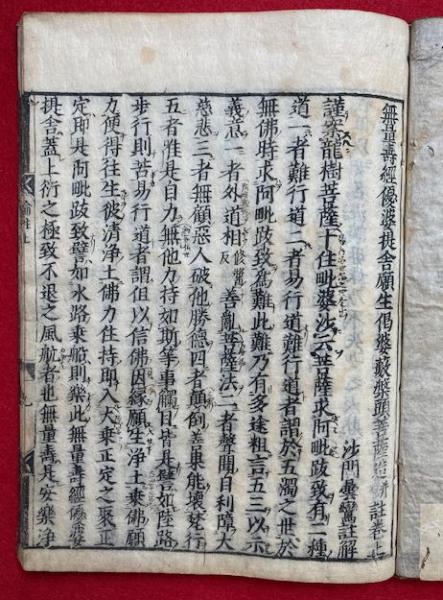 無量壽經優婆提舍願生偈婆藪槃頭菩薩造并註卷上
沙門曇鸞註解
謹案龍樹菩薩十住毗婆沙云菩薩求阿毗跋致有二種
道一者難行道二者易行道難行道者謂於五濁之世於
無佛時求阿毗跋致爲難此難乃有多途粗言五三以示
義意一者外道相善亂菩薩法二者聲聞自利障大
慈悲三者無顧惡人破他勝德四者顛倒善果能壞梵行
五者唯是自力無他力持如斯等事觸目皆是譬如陸路
步行則苦易行道者謂但以信佛因緣願生淨土乘佛願
力便得往生彼清淨土佛力住持即入大乘正定之聚正
定即是阿毗跋致譬如水路乘船則樂此無量壽經優婆
提舍蓋上衍之極致不退之風航者也無量壽是安樂淨